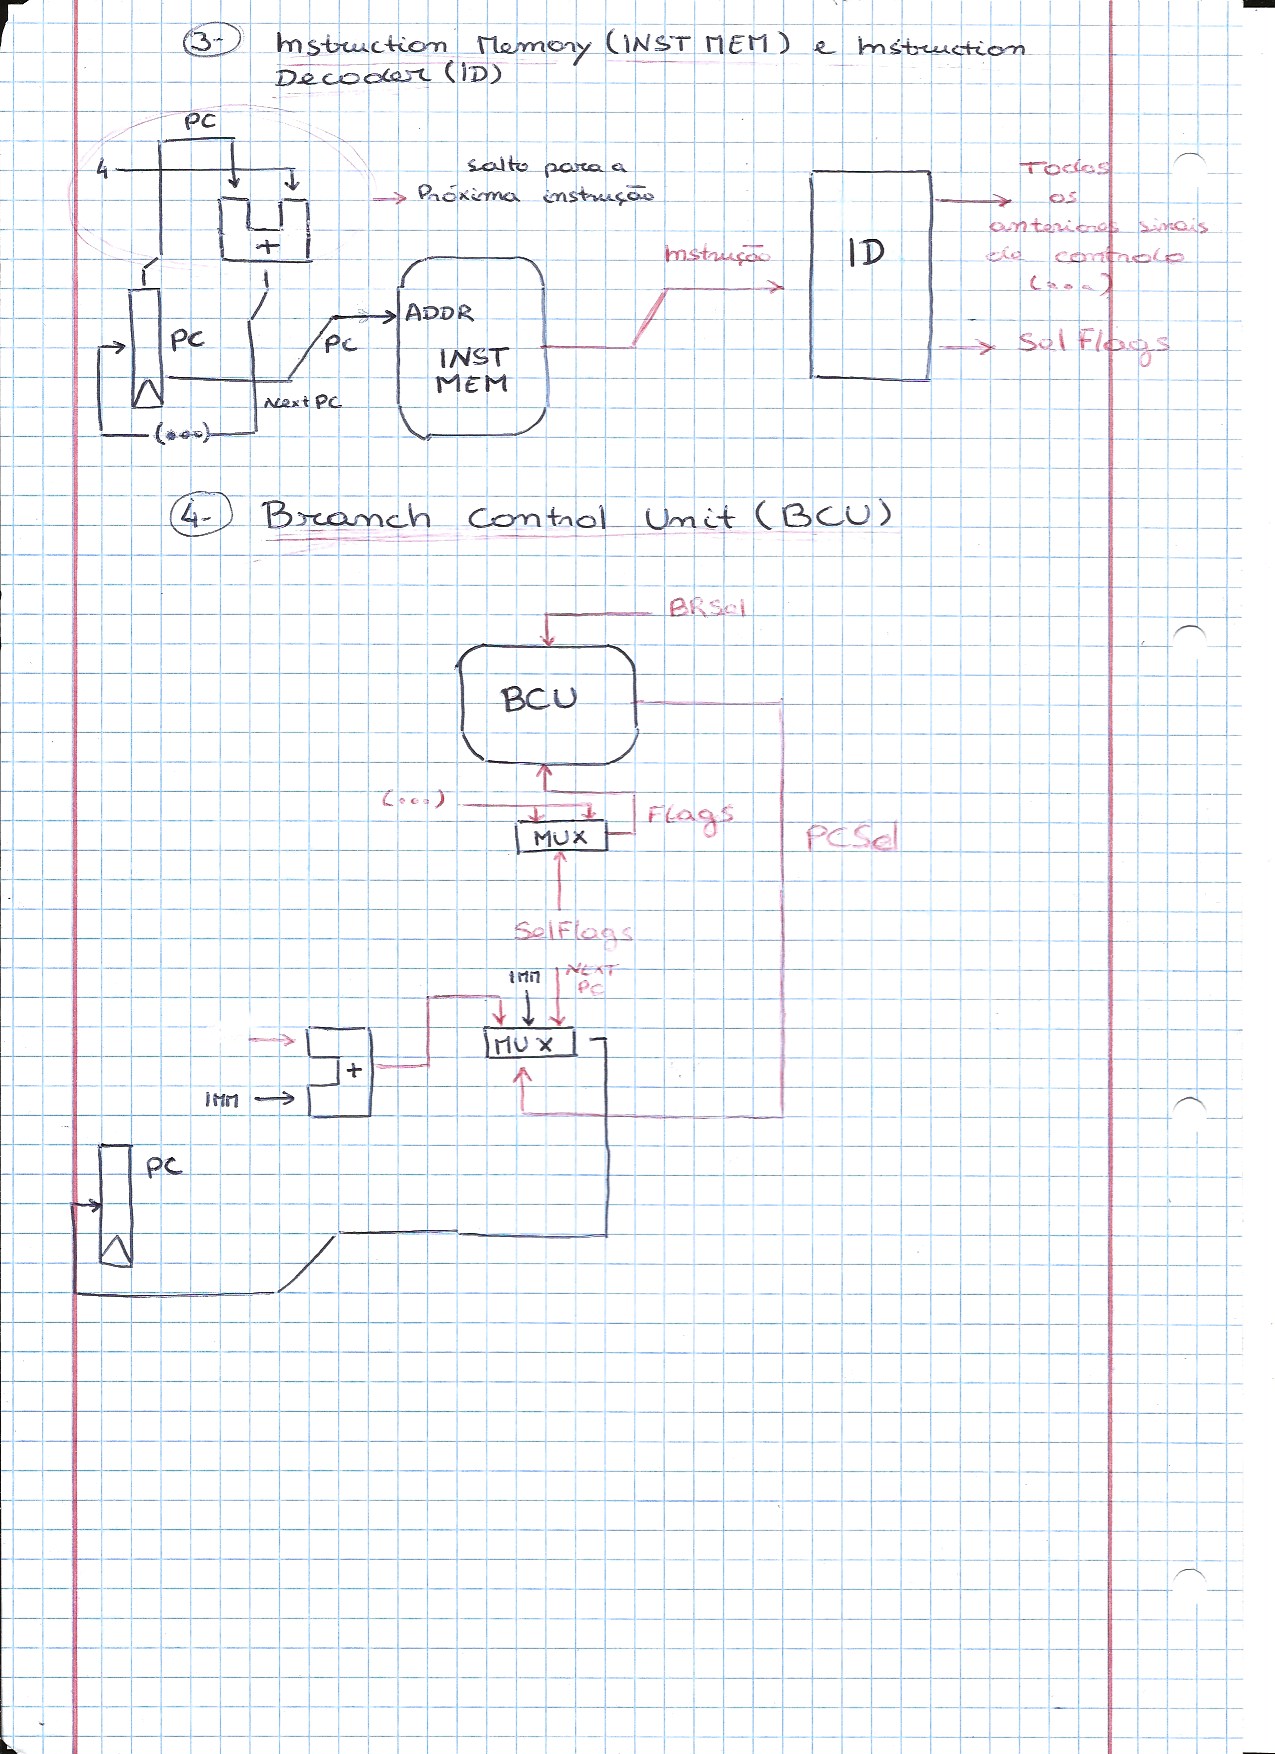 3- Instruction Memory (INST MEM) e Instruction
Decoder (ID)
PC
4
+
salto para a
→ Próxima instrução
PC
(...)
Next PC
PC
ADDR
INST
MEM
Instrução
ID
Todos
os
anteriores sinais
de controlo
(...)
Sel Flags
4- Branch Control Unit (BCU)
BRSel
BCU
(...)
MUX
Flags
PCSel
SelFlags
IMM
NEXT
PC
MUX
+
IMM
PC